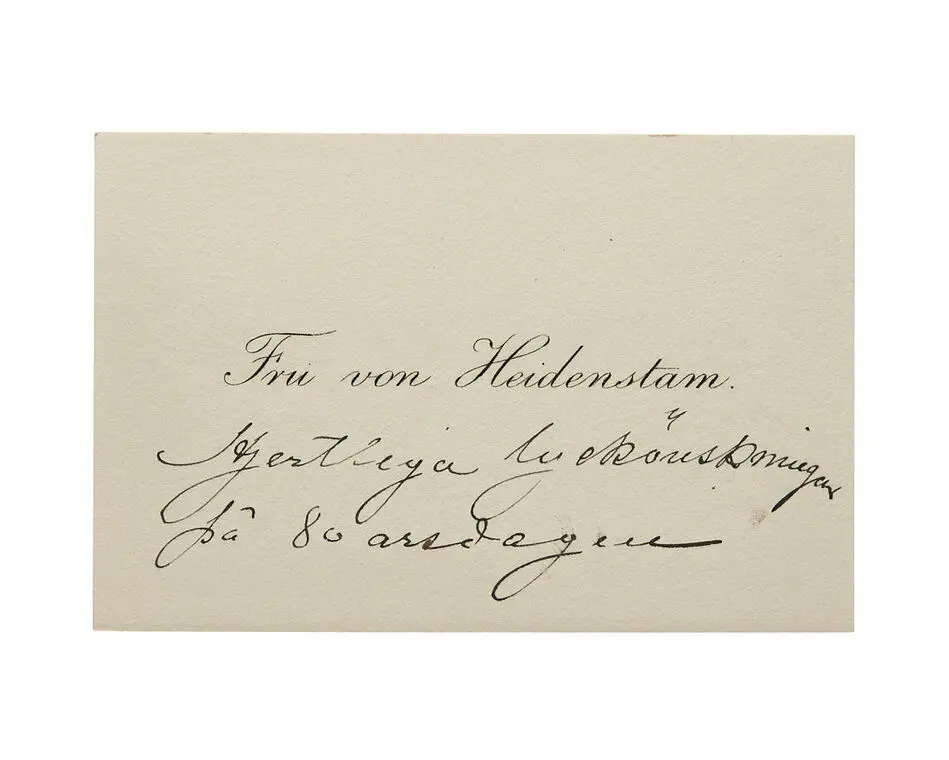 Fru von Heidenstam.
Hjertliga lyckönskningar
på 80 arsdagen